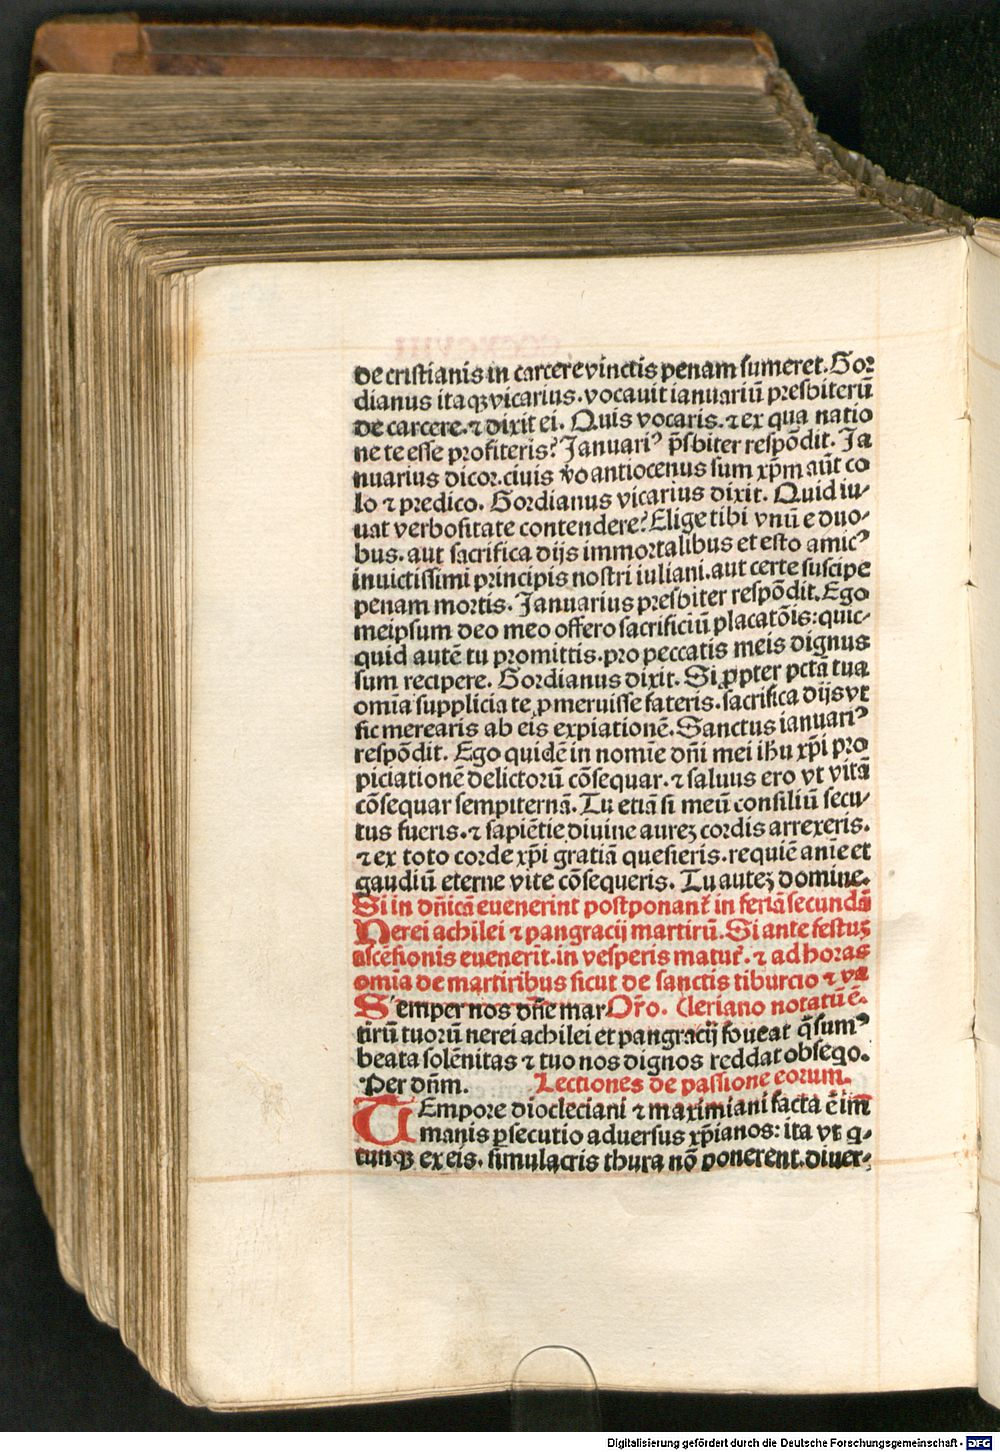 de cristianis in carcere vinctis penam sumeret. Gor
dianus itaqꝫ vicarius. vocauit ianuariū presbiterū
de carcere. ⁊ dixit ei. Quis vocaris. ⁊ ex qua natio
ne te esse profiteris? Januariꝰ p̄sbiter respōdit. Ja
nuarius dicor. ciuis v̄o antiocenus sum xp̄m aūt co
lo ⁊ predico. Gordianus vicarius dixit. Quid iu-
uat verbositate contendere? Elige tibi vnū e duo-
bus. aut sacrifica dijs immortalibus et esto amicꝰ
inuictissimi principis nostri iuliani. aut certe suscipe
penam mortis. Januarius presbiter respōdit. Ego
meipsum deo meo offero sacrificiū placatōis: quic-
quid autē tu promittis. pro peccatis meis dignus
sum recipere. Gordianus dixit. Si ꝓpter pctā tua
omīa supplicia te ꝓmeruisse fateris. sacrifica dijs vt
sic merearis ab eis expiationē. Sanctus ianuariꝰ
respōdit. Ego quidē in nomīe dn̄i mei ih̄u xp̄i pro
piciationē delictorū cōsequar. ⁊ saluus ero vt vitā
cōsequar sempiternā. Tu etiā si meū consiliū secu-
tus fueris. ⁊ sapiētie diuine aureꝫ cordis arrexeris.
⁊ ex toto corde xp̄i gratiā quesieris. requiē anīe et
gaudiū eterne vite cōsequeris. Tu auteꝫ domine.
Si in dn̄icā euenerint postponant̄ in feriā secundā
Nerei achilei ⁊ pangracij martirū. Si ante festuꝫ
ascēsionis euenerit. in vesperis matut̄. ⁊ ad horas
omīa de martiribus sicut de sanctis tiburcio ⁊ va
Semper nos dn̄e mar Or̄o. (leriano notatū ē.
tirū tuorū nerei achilei et pangracij foueat q̄sumꝰ
beata solēnitas ⁊ tuo nos dignos reddat obseqo.
Per dn̄m. Lectiones de passione eorum.
TEmpore diocleciani ⁊ maximiani facta ē im
manis ꝑsecutio aduersus xp̄ianos: ita vt q-
cunqꝫ ex eis. simulacris thura nō ponerent. diuer-
Digitalisierung gefördert durch die Deutsche Forschungsgemeinschaft - DFG